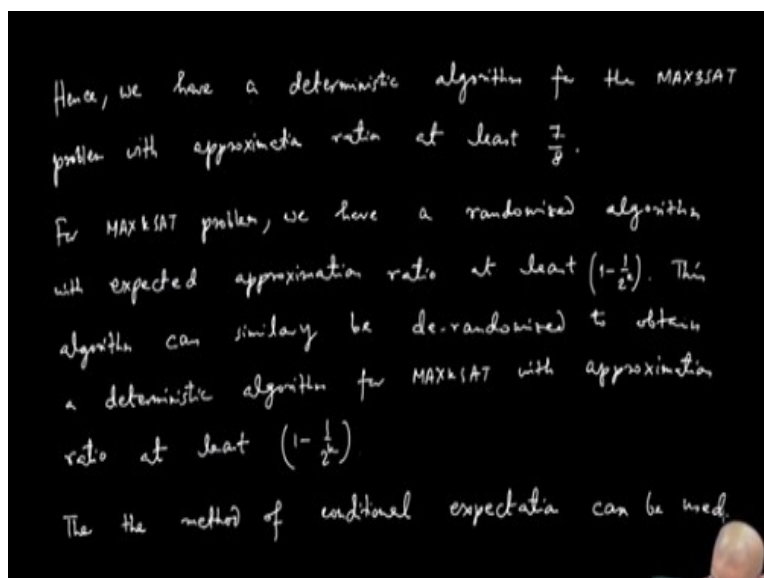 Hence, we have a deterministic algorithm for the MAX3SAT
problem with approximation ratio at least 7/8.
For MAX k SAT problem, we have a randomized algorithm
with expected approximation ratio at least (1-1/2^k). This
algorithm can similary be de-randomized to obtain
a deterministic algorithm for MAX k SAT with approximation
ratio at least (1-1/2^k)
The the method of conditional expectation can be used.